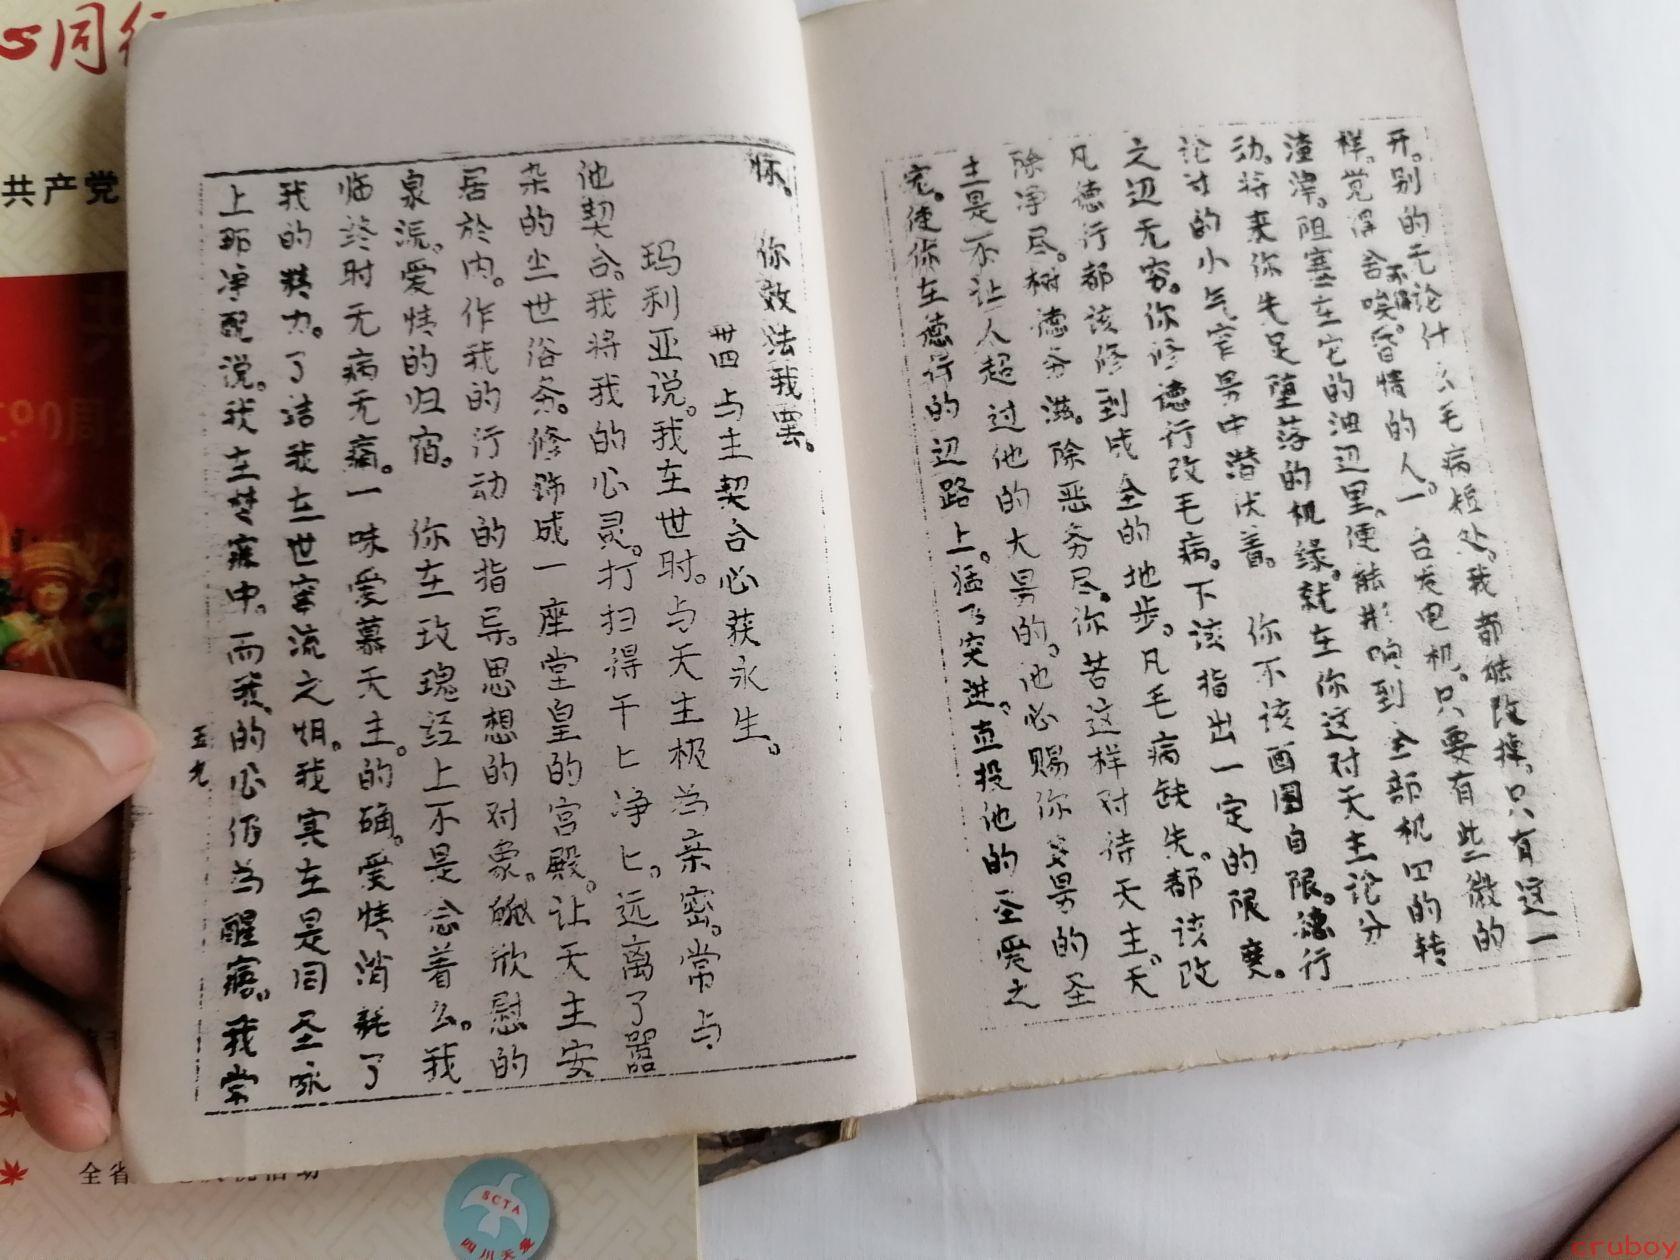 开。别的无论什么毛病短处。我都能改掉。只有这一
样。觉得舍不得。唉。昏情的人。一台发电机。只要有些微的
渣滓。阻塞在它的油边里。便能影响到全部机四的转
动。将来你失足堕落的机缘。就在你这对天主论分
论寸的小气窄男中潜伏着。 你不该画困自限。德行
之边无穷。你修德行改毛病。下该指出一定的限度。
凡德行都该修到成全的地步。凡毛病缺失。都该改
除净尽。树德务滋。除恶务尽。你若这样对待天主。天
主是不让人超过他的大男的。他必赐你多男的圣
宠。使你在德行的边路上。猛了突进。直投他的圣爱之
怀。 你效法我罢。
卅四 与主契合必获永生。
玛利亚说。我在世时。与天主极为亲密。常与
他契合。我将我的心灵。打扫得干匕净匕。远离了嚣
杂的尘世俗务。修饰成一座堂皇的宫殿。让天主安
居於内。作我的行动的指导。思想的对象。 欣慰的
泉沅。爱情的归宿。 你在玫瑰经上不是念着么。我
临终时无病无痛。一味爱慕天主。的确。爱情消耗了
我的精力。了结我在世寄流之期。我实在是同圣咏
上 净配说。我在梦寐中。而我的心仍为醒寤。我常
五九
共产党
同行
全省
SCTA
四川天爱
cruboy